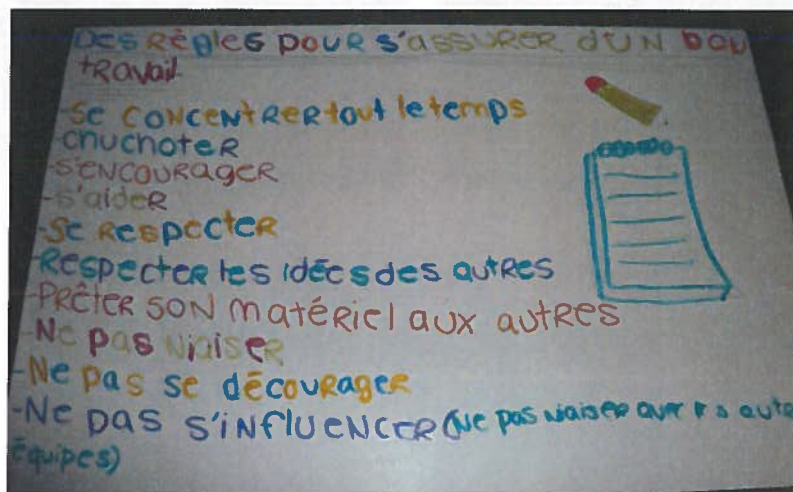 Des Règles pour s'assurer d'un bon
travail
-Se concentrer tout le temps
chuchoter
-s'encourager
-s'aider
-Se Respecter
-Respecter les idées des autres
-Prêter son matériel aux autres
-Ne pas niaiser
-Ne pas se décourager
-Ne pas s'influencer (Ne pas niaiser avec
équipes)